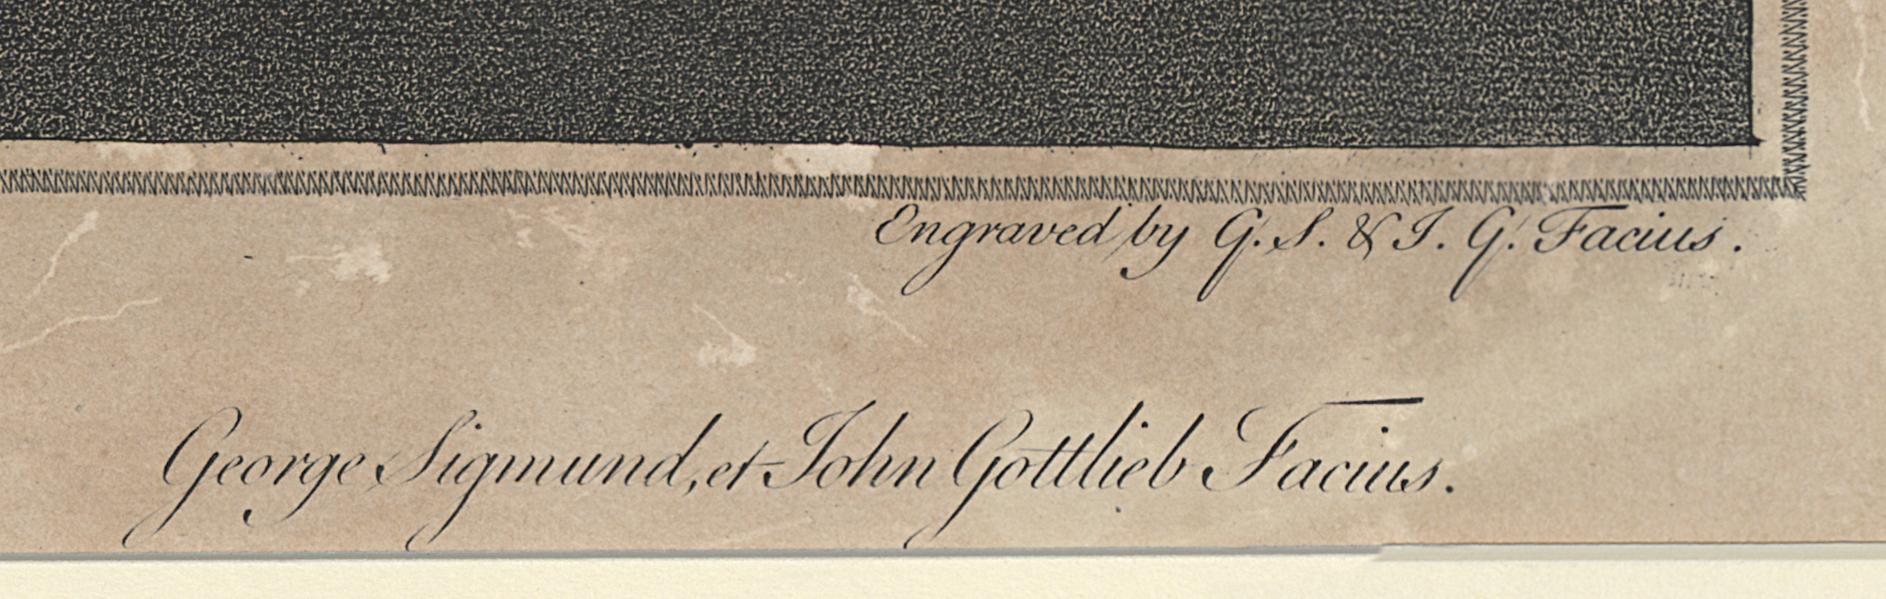 Engraved by G. S. & I. G. Facius.
George Sigmund, et John Gottlieb Facius.